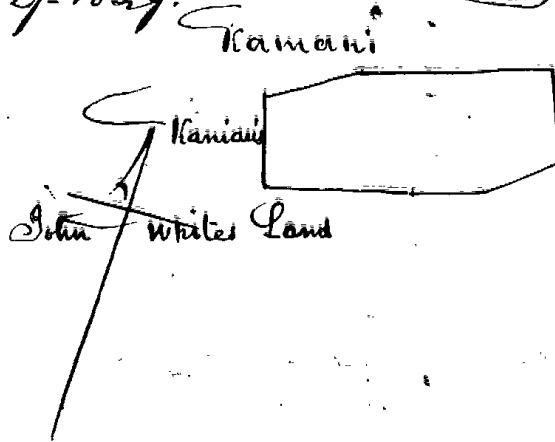 Kamani
Kaniau
John Whites Land